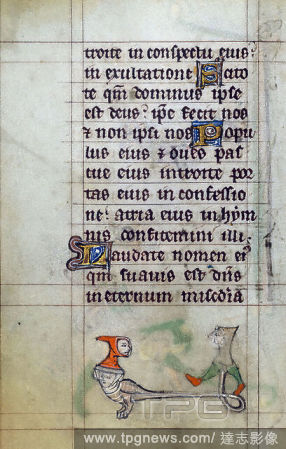 troite in conspectu eius:
in exultatione Scito
te qm dominus ipse
est deus: ipe fecit nos
⁊ non ipsi nos Popu
lus eius ⁊ oues pas
cue eius introite por
tas eius in confessio
ne: atria eius in hym
nis confitemini illi.
Laudate nomen ei'
qm suauis est dns
in eternum misc̄dia
TPG
www.tpgnews.com/ 達志影像